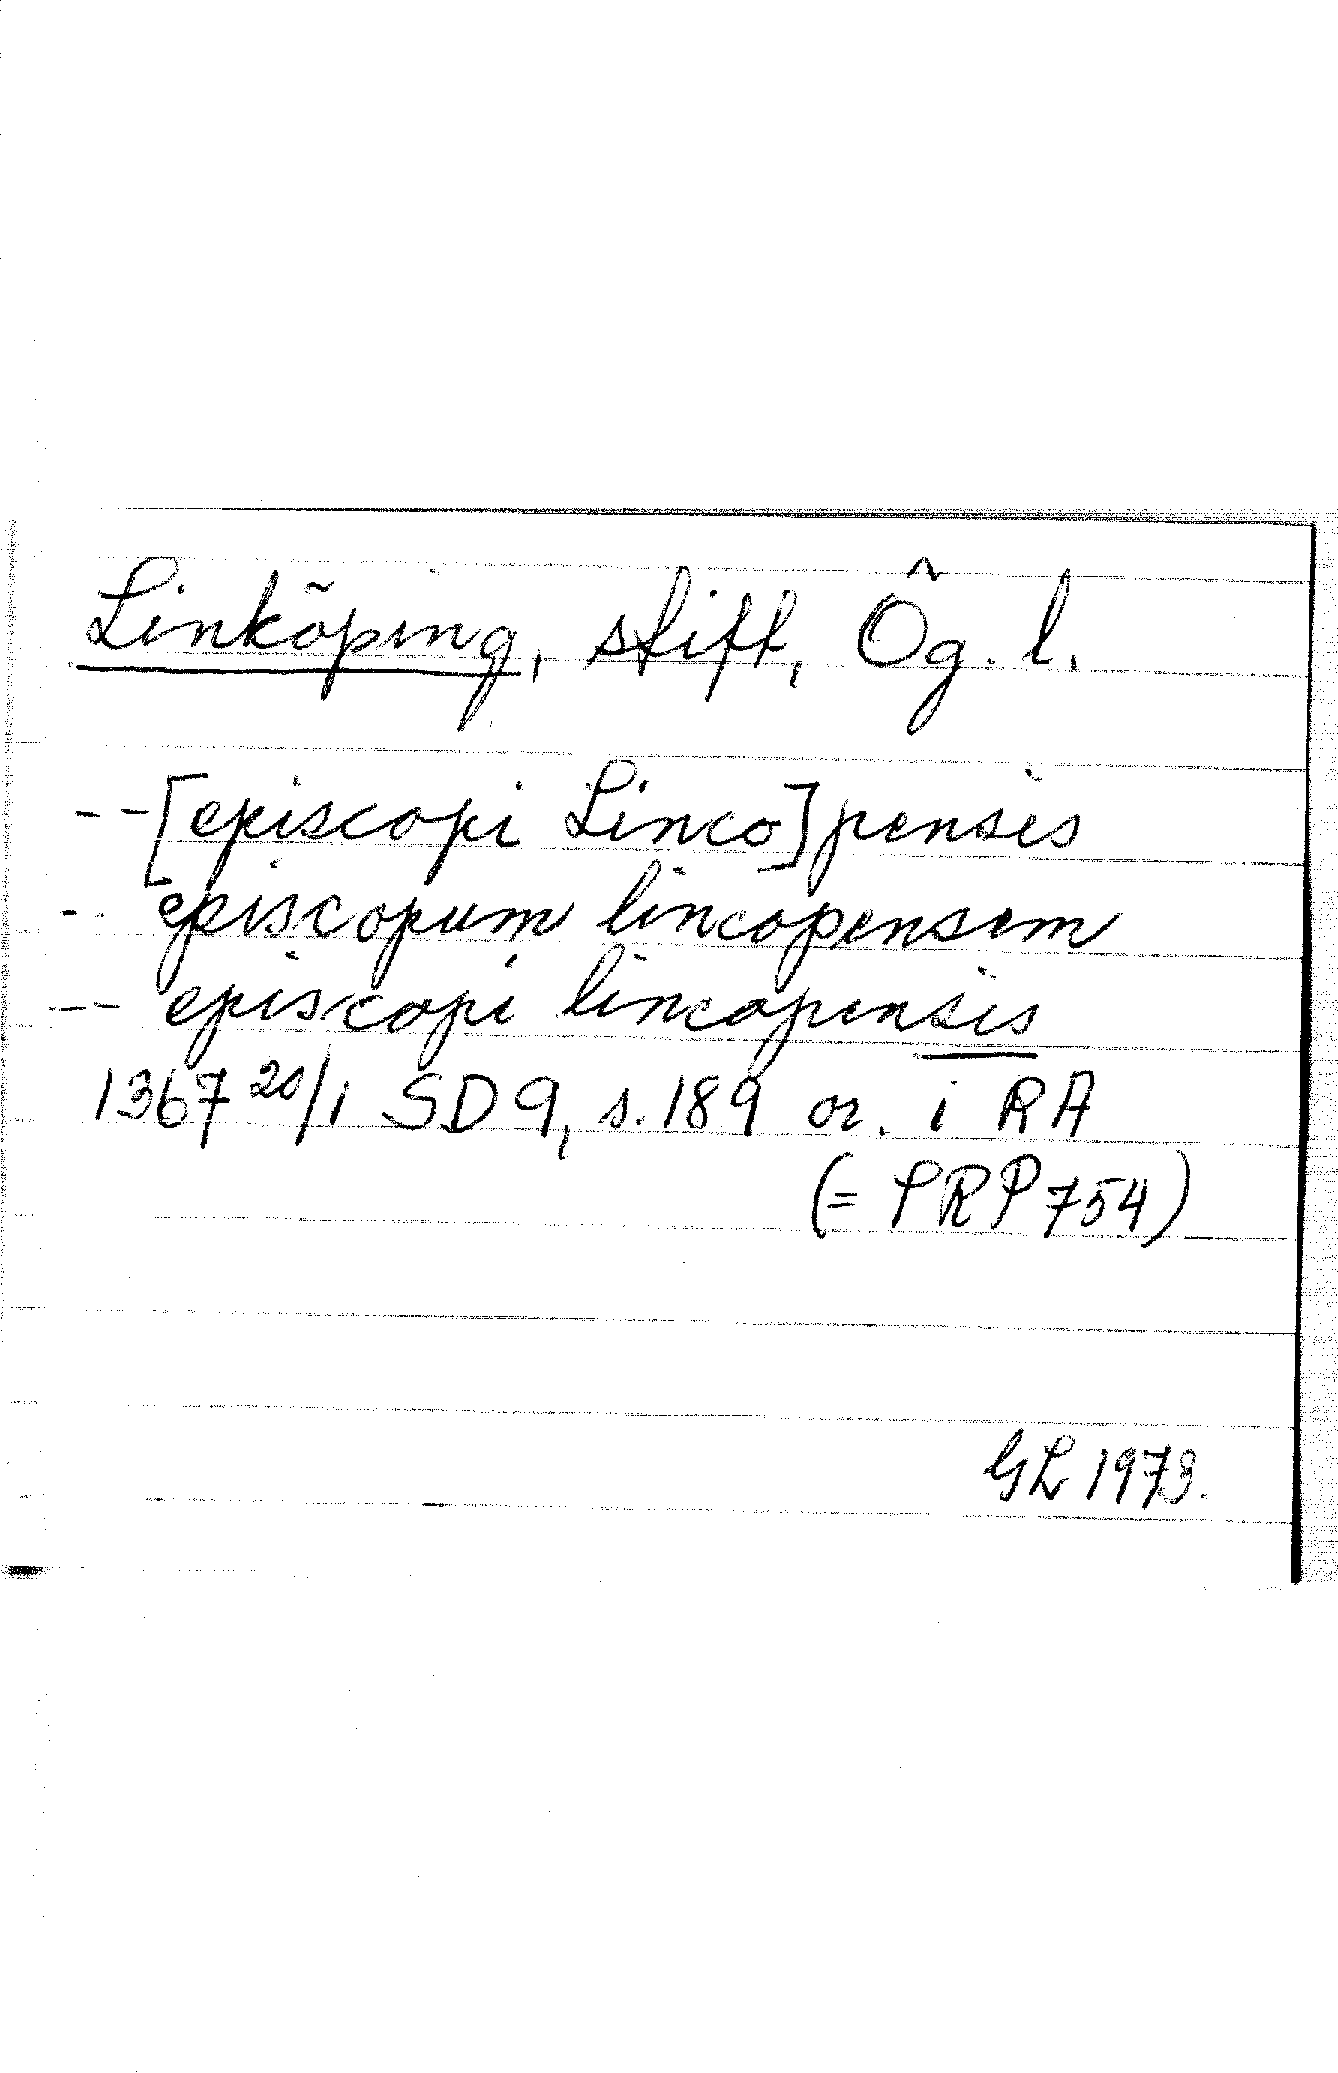 Linköping, stift, Ög. l.
-- [episcopi Linco]pensis
-- episcopum lincopensem
-- episcopi lincopensis
1367 20/1 SD 9, s. 189 or. i RA
(= PRP 754)
GL 1973.